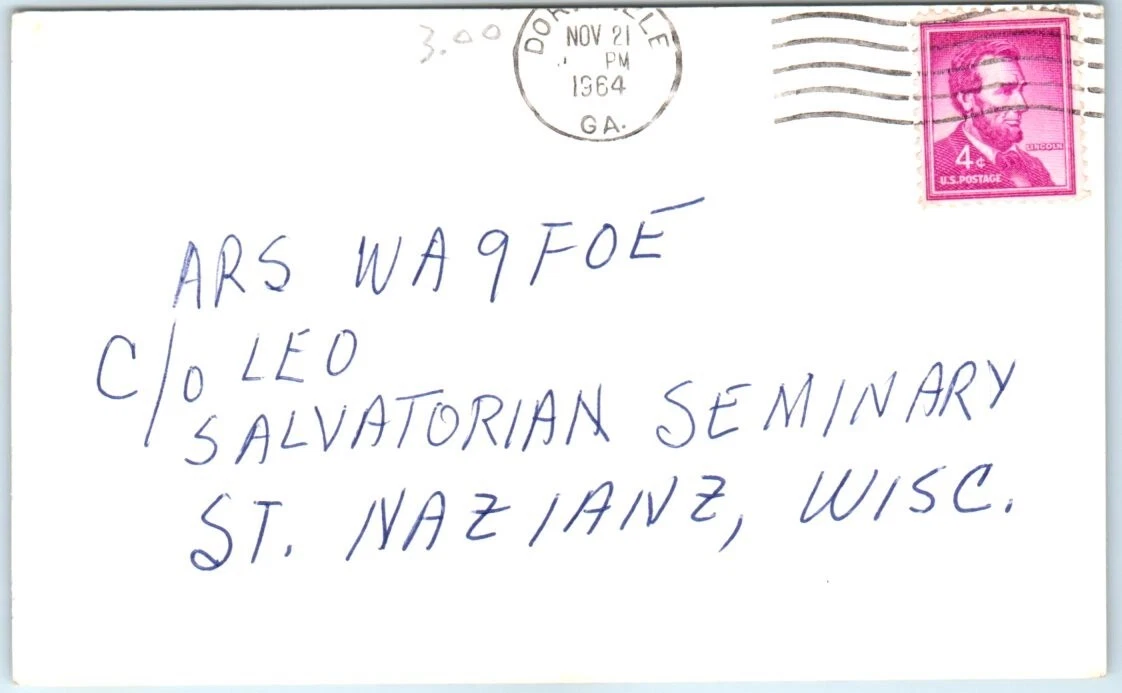 3.00
NOV 21
PM
1964
GA.
LINCOLN
4¢
U.S. POSTAGE
ARS WA9FOE
C/O LEO
SALVATORIAN SEMINARY
ST. NAZIANZ, WISC.